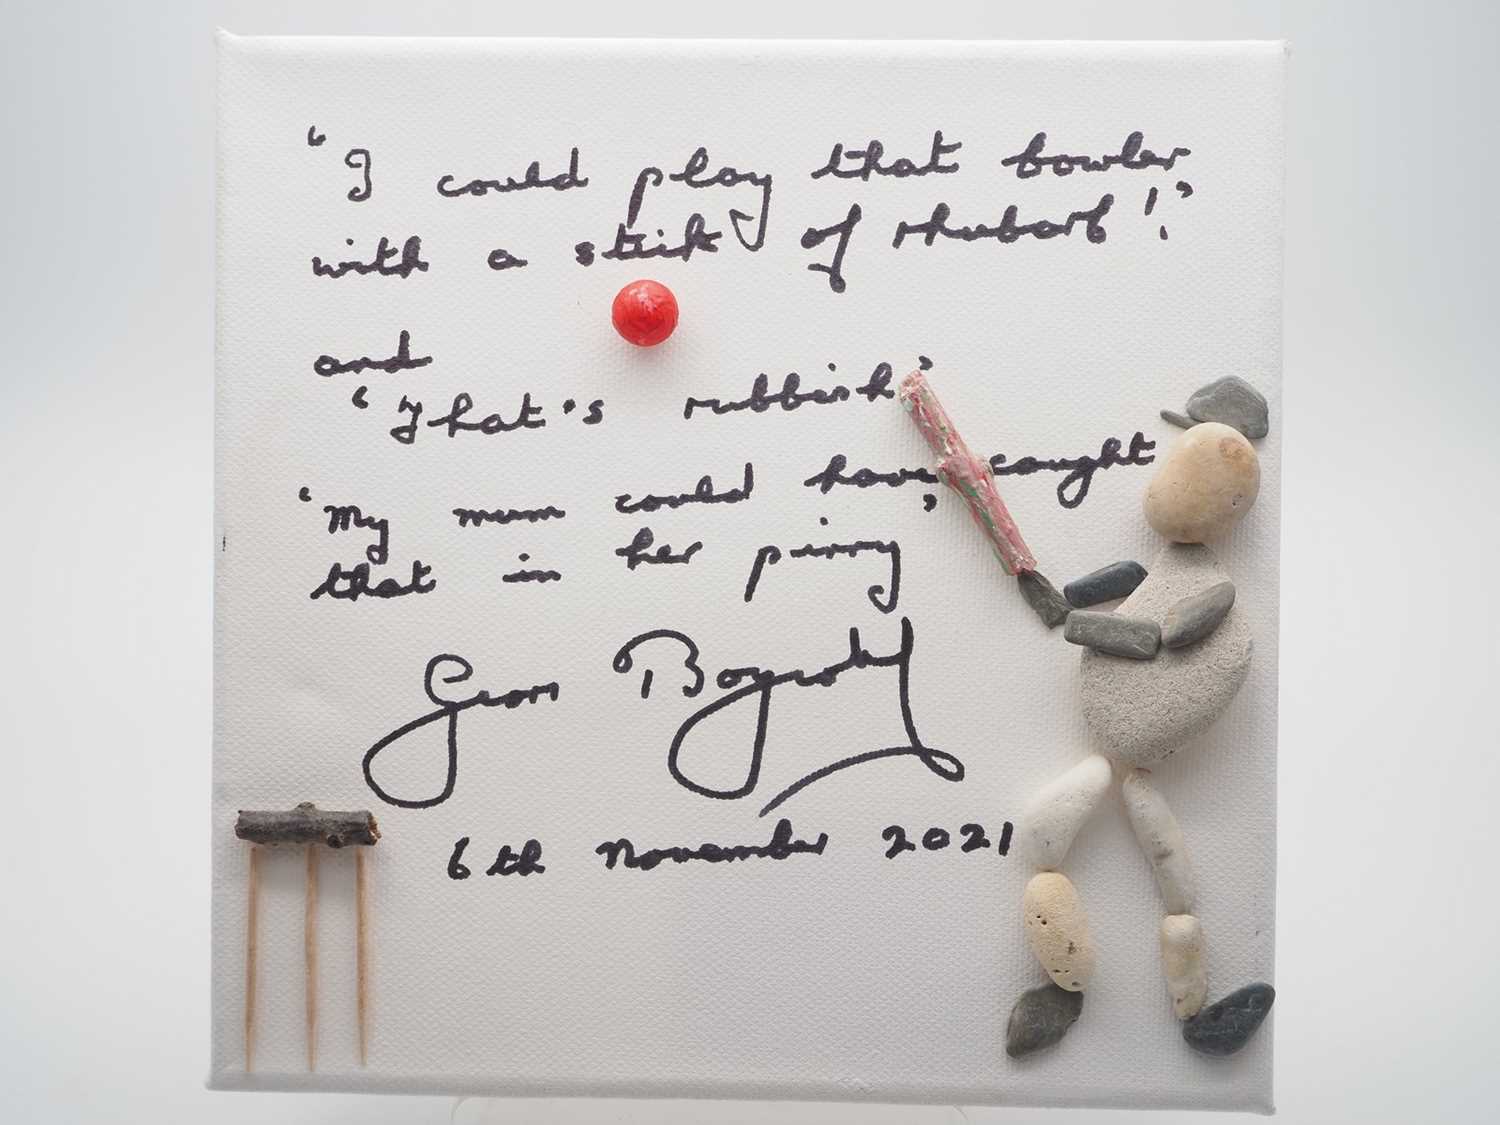 "I could play that bowler
with a stick of rhubarb!"
and
"That's rubbish"
'My mum could have caught
that in her pinny'
Geoff Boycott
6th November 2021